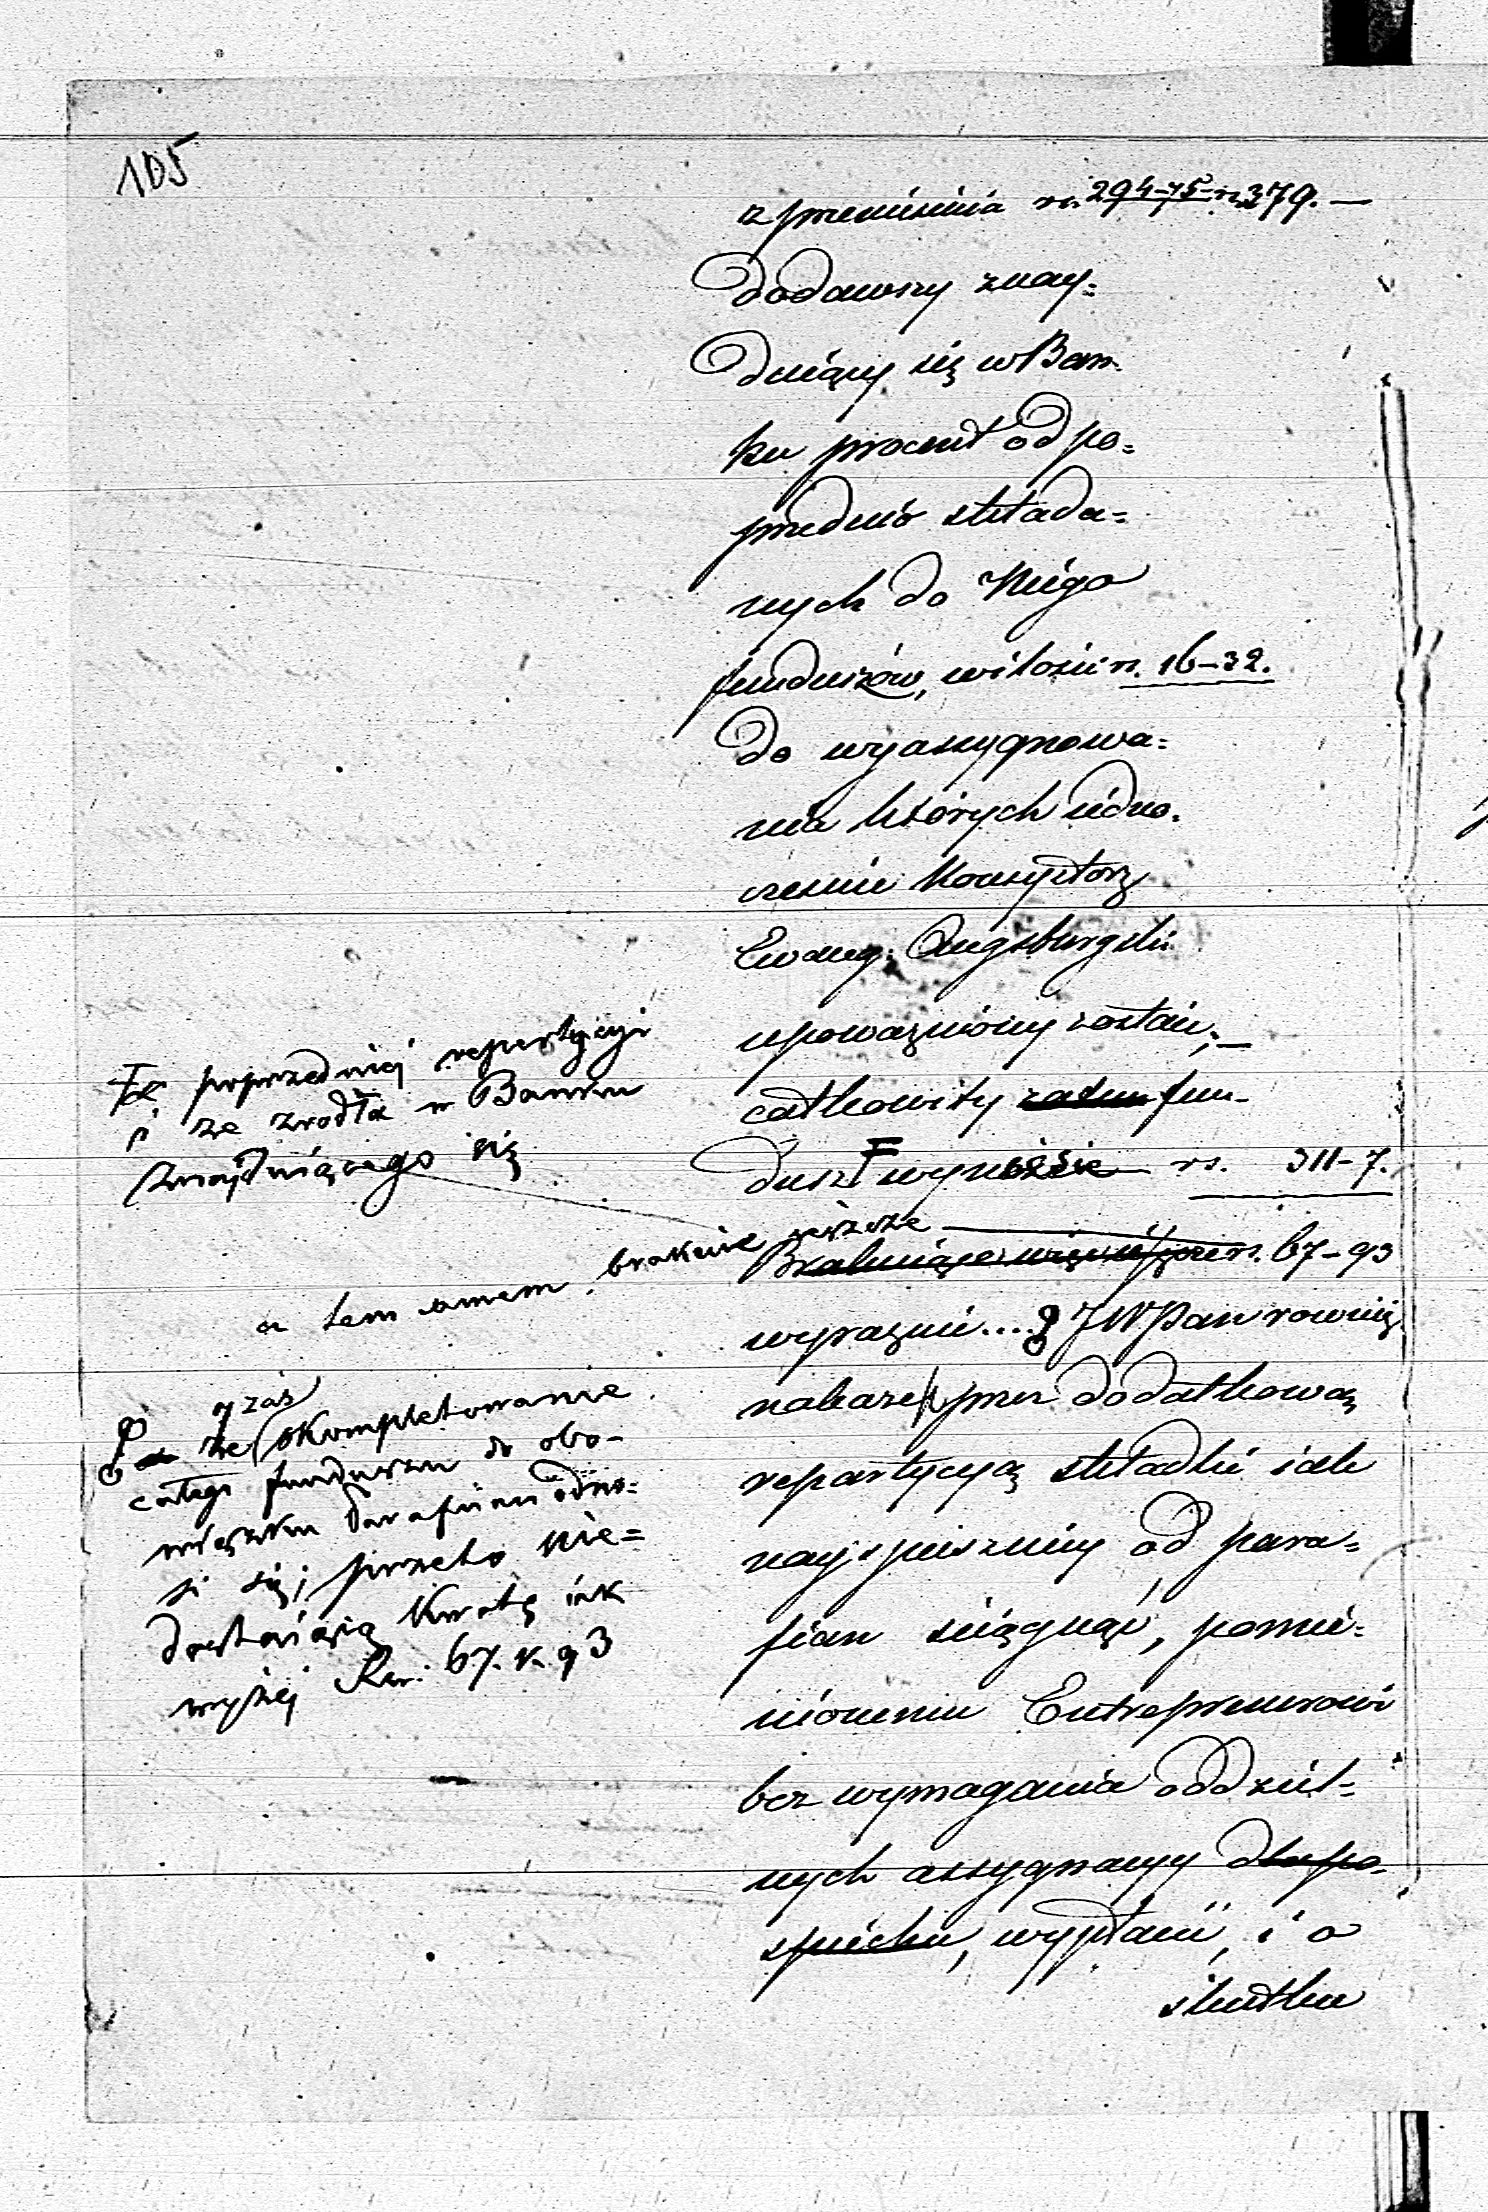 105
z przeniesienia rs. 294-75 rs. 379. —
Dodawszy znay=
duiący się w Ban=
ku procent od po=
przednio składa=
nych do Niego
funduszów, w ilości rs. 16-32.
do wyassygnowa=
nia których iedno=
cześnie Konsystorz
Ewang: Augsburgski
upoważniony zostaie;—
całkowity fun-
dusz F wyniesie rs. 311-7.
F z poprzedniej repartycyi
i ze zrodła w Banku
znajduiącego się
a tem samem brakuie ieszcze
Brakuiące więc ieszcze rs. 67-93
wyraznie.... JW Pan rownież
nakaże przez dodatkową
repartycyą składki iak
nayspieszniey od para=
fian ściągnąć, pomie=
nionemu Entreprenerowi
bez wymagania oddziel=
nych assygnacyy dla po=
spiechu, wypłacić, i o
skutku
gdy zaś
że skompletowanie
całego funduszu do obo=
wiązku Parafian odno=
si się; przeto nie=
dostaiącą kwotę iak
wyżej Rsr: 67. k. 93